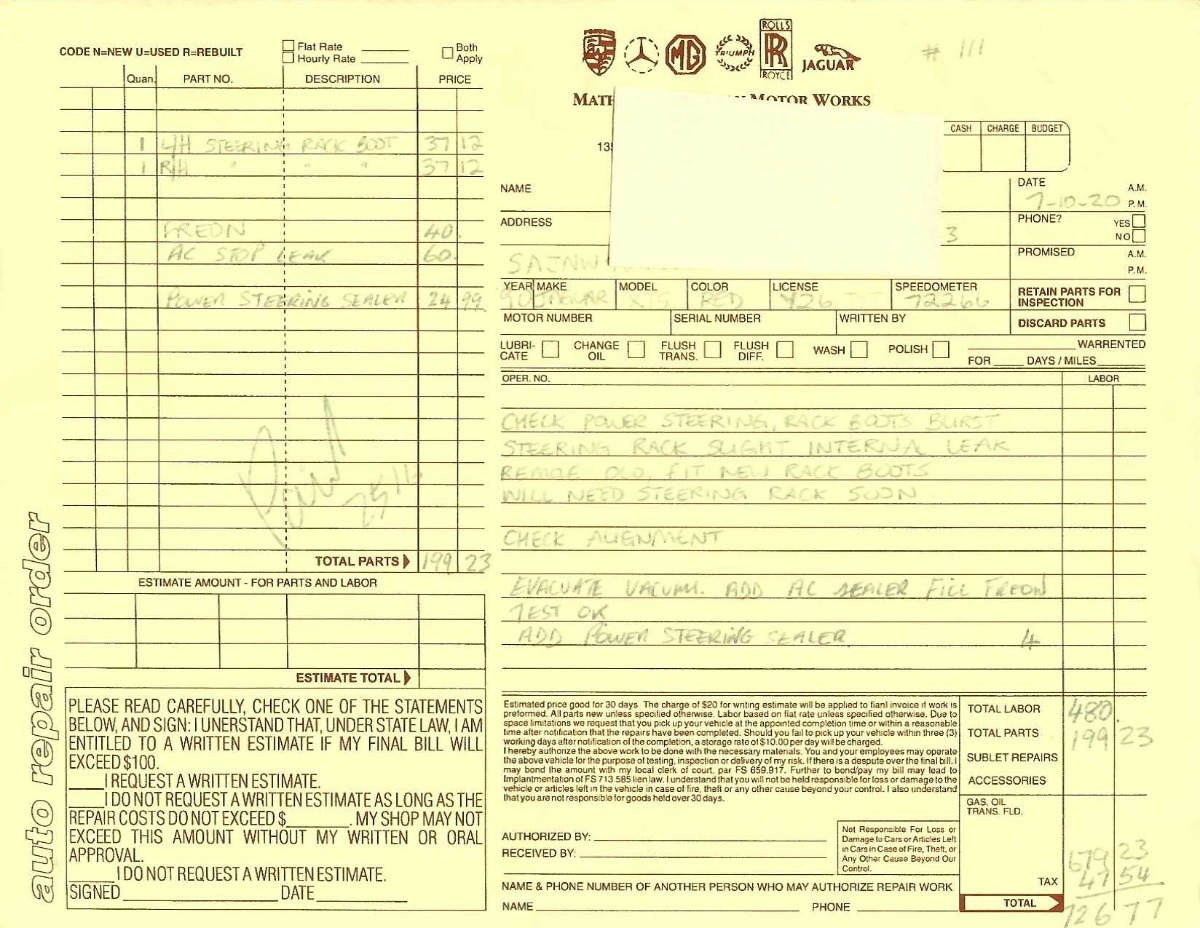 CODE N=NEW U=USED R=REBUILT
Flat Rate
Hourly Rate
Both Apply
Quan. PART NO. DESCRIPTION PRICE
1 L/H STEERING RACK BOOT 37 12
1 R/H " " " 37 12
FREON 40.
AC STOP LEAK 60.
POWER STEERING SEALER 24 99
Paid
TOTAL PARTS 199 23
ESTIMATE AMOUNT - FOR PARTS AND LABOR
ESTIMATE TOTAL
auto repair order
PLEASE READ CAREFULLY, CHECK ONE OF THE STATEMENTS
BELOW, AND SIGN: I UNERSTAND THAT, UNDER STATE LAW, I AM
ENTITLED TO A WRITTEN ESTIMATE IF MY FINAL BILL WILL
EXCEED $100.
I REQUEST A WRITTEN ESTIMATE.
I DO NOT REQUEST A WRITTEN ESTIMATE AS LONG AS THE
REPAIR COSTS DO NOT EXCEED $ . MY SHOP MAY NOT
EXCEED THIS AMOUNT WITHOUT MY WRITTEN OR ORAL
APPROVAL.
I DO NOT REQUEST A WRITTEN ESTIMATE.
SIGNED DATE
MG
TRIUMPH
ROLLS
RR
ROYCE
JAGUAR
# 111
MOTOR WORKS
CASH CHARGE BUDGET
NAME
DATE A.M.
7-10-20 P.M.
ADDRESS
3
PHONE? YES
NO
SAJNW
PROMISED A.M.
P.M.
YEAR MAKE MODEL COLOR LICENSE SPEEDOMETER
90 JAGUAR XJS RED Y26 72266
RETAIN PARTS FOR
INSPECTION
MOTOR NUMBER SERIAL NUMBER WRITTEN BY
DISCARD PARTS
LUBRI-
CATE
CHANGE
OIL
FLUSH
TRANS.
FLUSH
DIFF.
WASH
POLISH
WARRENTED
FOR DAYS / MILES
OPER. NO. LABOR
CHECK POWER STEERING, RACK BOOTS BURST
STEERING RACK SLIGHT INTERNAL LEAK
REMOE OLD, FIT NEW RACK BOOTS
WILL NEED STEERING RACK SOON
CHECK ALIGNMENT
EVACUATE VACUUM. ADD AC SEALER FILL FREON
TEST OK
ADD POWER STEERING SEALER 4
Estimated price good for 30 days. The charge of $20 for writing estimate will be applied to fianl invoice if work is
preformed. All parts new unless specified otherwise. Labor based on flat rate unless specified otherwise. Due to
space limitations we request that you pick up your vehicle at the appointed completion time or within a reasonable
time after notification that the repairs have been completed. Should you fail to pick up your vehicle within three (3)
working days after notification of the completion, a storage rate of $10.00 per day will be charged.
I hereby authorize the above work to be done with the necessary materials. You and your employees may operate
the above vehicle for the purpose of testing, inspection or delivery of my risk. If there is a despute over the final bill. I
may bond the amount with my local clerk of court, par FS 659.917. Further to bond/pay my bill may lead to
Implantmentation of FS 713 585 lien law. I understand that you will not be held responsible for loss or damage to
vehicle or articles left in the vehicle in case of fire, theft or any other cause beyond your control. I also understand
that you are not responsible for goods held over 30 days.
AUTHORIZED BY:
RECEIVED BY:
Not Responsible For Loss or
Damage to Cars or Articles Left
in Cars in Case of Fire, Theft, or
Any Other Cause Beyond Our
Control.
NAME & PHONE NUMBER OF ANOTHER PERSON WHO MAY AUTHORIZE REPAIR WORK
NAME PHONE
TOTAL LABOR 480.
TOTAL PARTS 199 23
SUBLET REPAIRS
ACCESSORIES
GAS, OIL
TRANS. FLD.
679 23
TAX 47 54
TOTAL 726 77